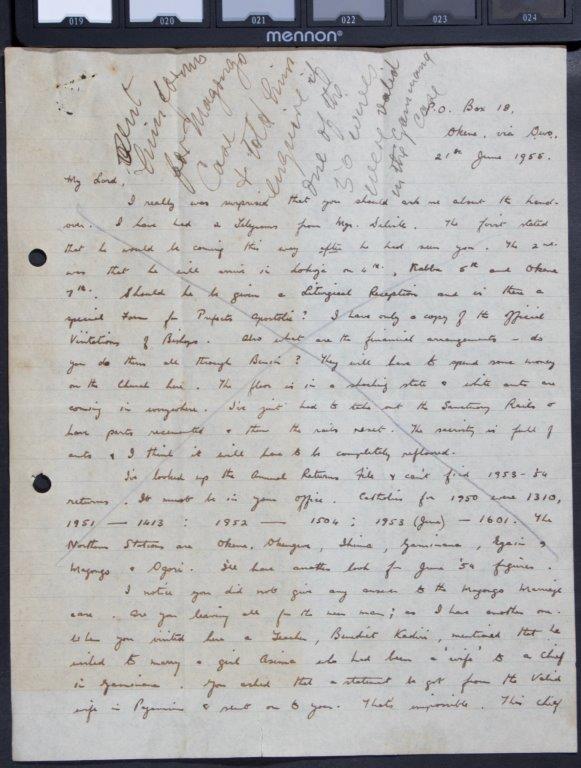 019 020 021 022 023 024
mennon
Sent
him forms
for Magongo
Case
& told him
enquire if
one of the
30 wives
were valid
in the
Case
P.O. Box 18,
Okene, via Owo,
21st June 1955.
My Lord,
I really was surprised that you should ask me about the hand-
over. I have had 2 Telegrams from Mgr. Delisle. The first stated
that he would be coming this way after he had seen you. The 2nd
was that he will arrive in Lokoja on 4th, Kabba 5th and Okene
7th. Should he be given a Liturgical Reception and is there a
special Form for Prefects Apostolic? I have only a copy of the official
Visitations of Bishops. Also what are the financial arrangements - do
you do them all through Benin? They will have to spend some money
on the Church here. The floor is in a shocking state & white ants are
coming in everywhere. I've just had to take out the Sanctuary Rails &
have parts recemented & then the rails reset. The sacristy is full of
ants & I think it will have to be completely refloored.
I've looked up the Annual Returns File & can't find 1953-54
returns. It must be in your office. Catholics for 1950 were 1310,
1951 — 1413 : 1952 — 1504 ; 1953 (June) — 1601. The
Northern Stations are Okene, Okengwe, Ihima, , &
Magongo & Ogori. I'll have another look for June '54 figures.
I notice you did not give any answer to the Magongo Marriage
case. Are you leaving all for the new man; as I have another one.
When you visited here a Teacher, Benedict Kadiri, mentioned that he
wished to marry a girl Asima who had been a 'wife' to a Chief
in . You asked that a statement be got from the Valid
wife in & sent on to you. That's impossible. This Chief